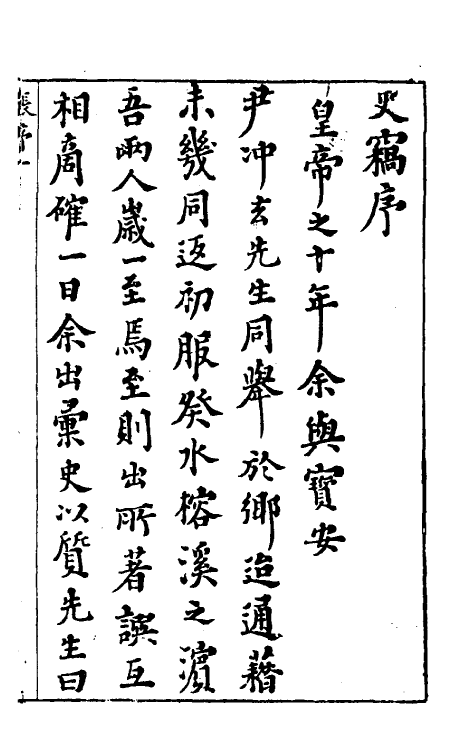 史竊序
皇帝之十年余與寶安
尹冲玄先生同舉於鄉迨通藉
未幾同返初服癸水榕溪之濵
吾兩人歲一至焉至則出所著譔互
相商確一日余出彚史以質先生曰
張序一